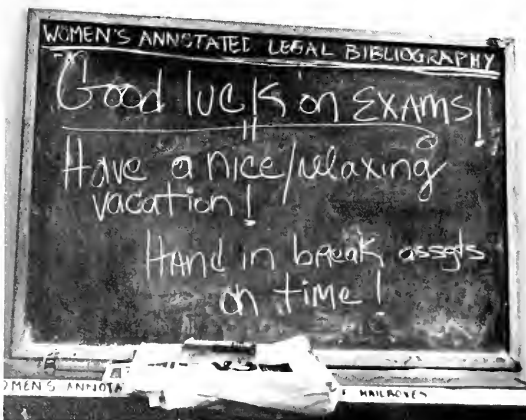 WOMEN'S ANNOTATED LEGAL BIBLIOGRAPHY
Good luck on EXAMS!!
Have a nice/relaxing
vacation!
Hand in break assgts
on time!
OMEN'S ANNOTA MAILBOXES